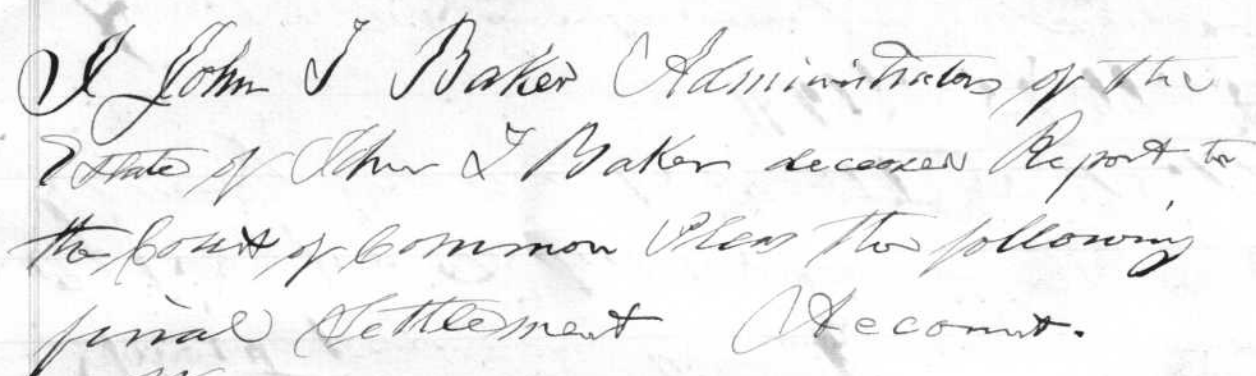 I John T Baker Administrator of the
Estate of John T Baker deceased Report to
the Court of Common Pleas the following
final Settlement Account.